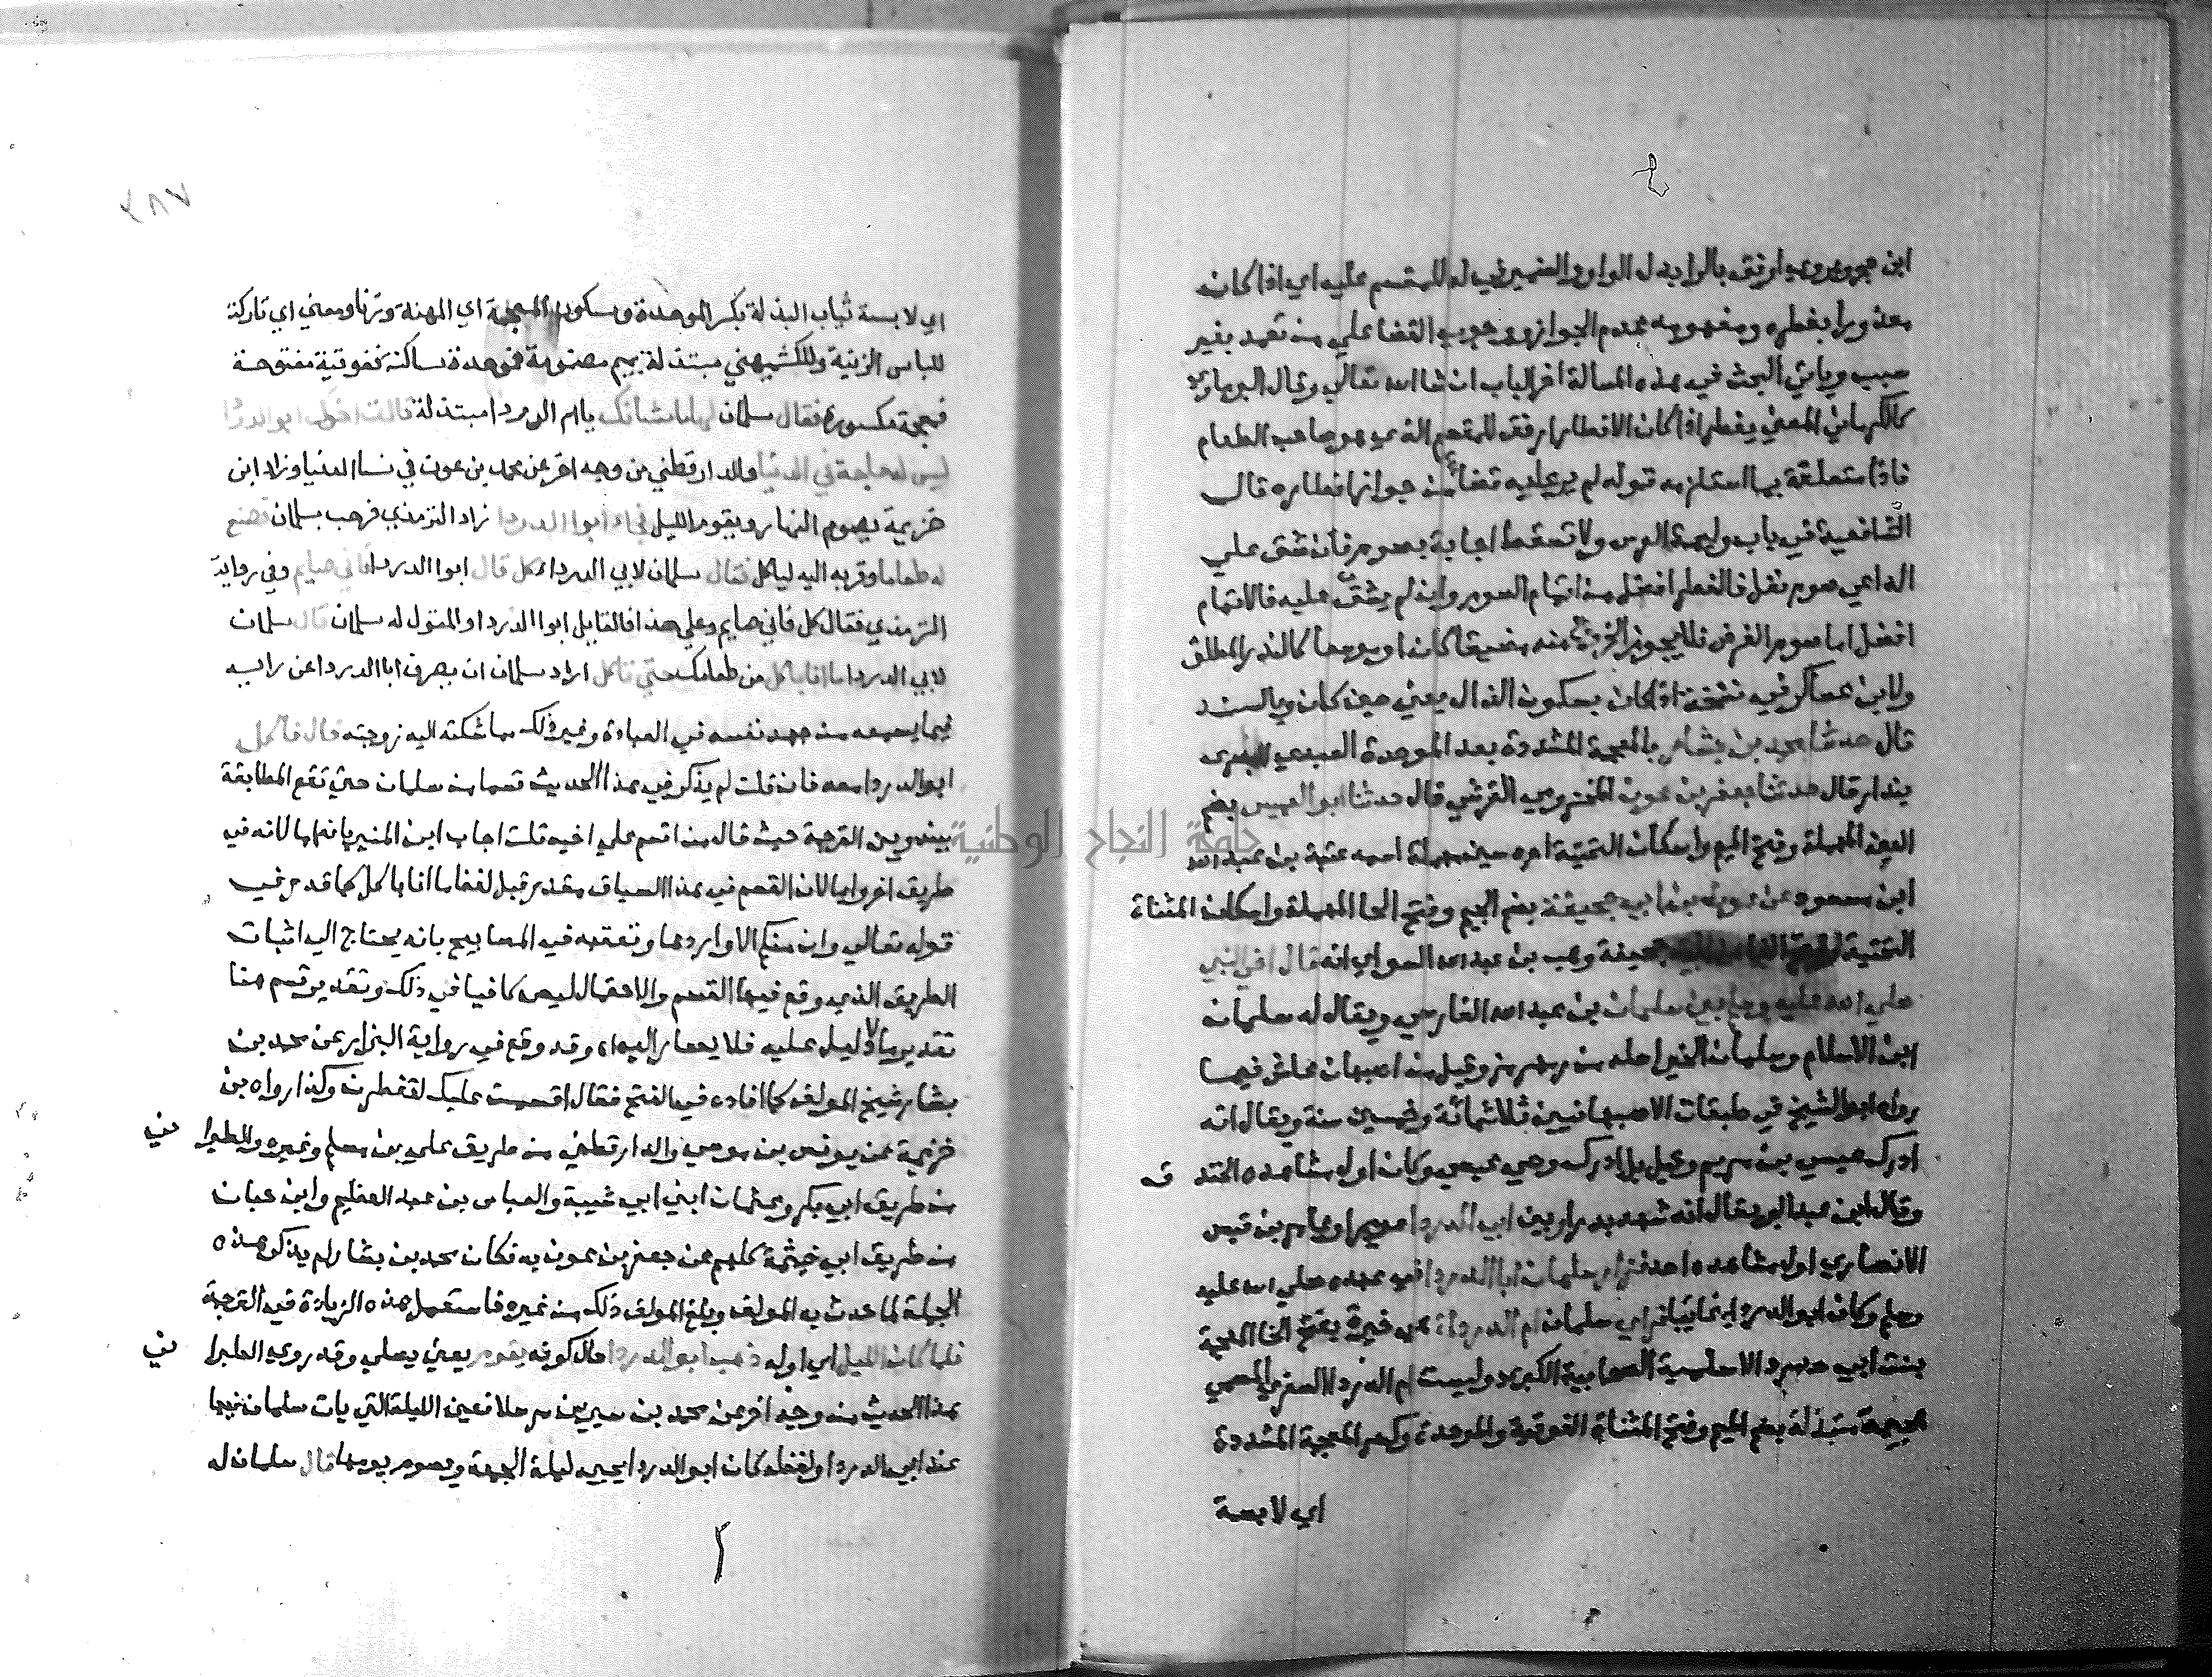 ابن حجر ويروي ارفق بالرا بدل الواو والضمير في له للمقسم عليه اي اذا كان
معذورا بفطره ومفهومه عدم الجواز ووجوب القضا علي من تعمد بغير
سبب وياتي البحث في هذه المسالة اخر الباب ان شا الله تعالي وقال البرماوي
كالكرماني المعني يفطر اذا كان الافطار ارفق للمقسم الذي هو صاحب الطعام
فاذا متعلقة بما استلزمه قوله لم ير عليه قضا من جواز افطاره قال
الشافعية في باب وليمة العرس ولا تسقط اجابة بصوم فان شق علي
الداعي صوم نفل فالفطر افضل من اتمام الصوم وان لم يشق عليه فالاتمام
افضل اما صوم الفرض فلا يجوز الخروج منه مضيقا كان او موسعا كالنذر المطلق
ولابن عساكر في نسخة اذ كان بسكون الذال يعني حين كان وبالسند
قال حدثنا محمد بن بشار بالمعجمة المشددة بعد الموحدة العبدي البصري
بندار قال حدثنا جعفر بن عون المخزومي القرشي قال حدثنا ابو العميس بضم
العين المهملة وفتح الميم واسكان التحتية اخره سين مهملة اسمه عتبة بن عبد الله
ابن مسعود عن عون بن ابي جحيفة بضم الجيم وفتح الحا المهملة واسكان المثناة
التحتية وفتح الفا عن ابيه جحيفة وهب بن عبد الله السواي انه قال اخي النبي
صلي الله عليه وسلم بين سلمان بن عبد الله الفارسي ويقال له سلمان
ابن الاسلام وسلمان الخير اصله من رامهرمز وقيل من اصبهان عاش فيما
رواه ابو الشيخ في طبقات الاصبهانيين ثلاثمائة وخمسين سنة ويقال انه
ادرك عيسي بن مريم وقيل بل ادرك وصي عيسي وكان اول مشاهده الخند ق
وقال ابن عبد البر يقال انه شهد بدرا وبين ابي الدردا عويمر او عامر بن قيس
الانصاري اول مشاهده احد فزار سلمان ابا الدردا في عهده صلي الله عليه
وسلم وكان ابو الدردا غايبا فراي سلمان ام الدرداء هي خيرة بفتح الخا المعجمة
بنت ابي حدرد الاسلمية الصحابية الكبري وليست ام الدردا الصغري المسمي
هجيمة متبذلة بضم الميم وفتح المثناة الفوقية والموحدة وكسر المعجمة المشددة
اي لابسة
اي لابسة ثياب البذلة بكسر الموحدة وسكون المعجمة اي المهنة وزنا ومعني اي تاركة
للباس الزينة وللكشميهني مبتذلة بميم مضمومة فموحدة ساكنة ففوقية مفتوحة
فمعجمة مكسورة فقال سلمان لها ما شانك يا ام الدردا مبتذلة قالت اخوك ابو الدردا
ليس له حاجة في الدنيا وللدارقطني من وجه اخر عن محمد بن عون في نسا الدنيا وزاد ابن
خزيمة يصوم النهار ويقوم الليل فجاء ابو الدردا زاد الترمذي فرحب بسلمان فصنع
له طعاما وقربه اليه لياكل فقال سلمان لابي الدردا كل قال ابو الدردا فاني صايم وفي رواية
الترمذي فقال كل فاني صايم وعلي هذا فالقايل ابو الدردا والمقول له سلمان قال سلمان
لابي الدردا ما انا باكل من طعامك حتي تاكل اراد سلمان ان يصرف ابا الدردا عن رايه
فيما يصنعه من جهد نفسه في العبادة وغير ذلك مما شكته اليه زوجته قال فاكل
ابو الدردا معه فان قلت لم يذكر في هذا الحديث قسما من سلمان حتي تقع المطابقة
بينه وبين الترجمة حيث قال من اقسم علي اخيه قلت اجاب ابن المنير بانه اما لانه في
طريق اخر واما لان القسم في هذا السياق مقدر قبل لفظ ما انا باكل كما قدر في
قوله تعالي وان منكم الا واردها وتعقبه في المصابيح بانه يحتاج الي اثبات
الطريق الذي وقع فيها القسم والاحتمال ليس كافيا في ذلك وتقدير قسم هنا
تقدير ما لا دليل عليه فلا يصار اليه اه وقد وقع في رواية البزار عن محمد بن
بشار شيخ المولف كما افاده في الفتح فقال اقسمت عليك لتفطرن وكذا رواه بن
خزيمة عن يوسف بن موسي والدارقطني من طريق علي بن مسلم وغيره والطبرا ني
من طريق ابي بكر وعثمان ابني ابي شيبة والعباس بن عبد العظيم وابن حبان
من طريق ابي خيثمة كلهم عن جعفر بن عون به فكان محمد بن بشار لم يذكر هذه
الجملة لما حدث به المولف وبلغ المولف ذلك من غيره فاستعمل هذه الزيادة في الترجمة
فلما كان الليل اي اوله ذهب ابو الدردا حال كونه يقوم يعني يصلي وقد روي الطبرا ني
هذا الحديث من وجه اخر عن محمد بن سيرين مرسلا فعين الليلة التي بات سلمان فيها
عند ابي الدردا ولفظه كان ابو الدردا يحيي ليلة الجمعة ويصوم يومها قال سلمان له
جامعة النجاح الوطنية